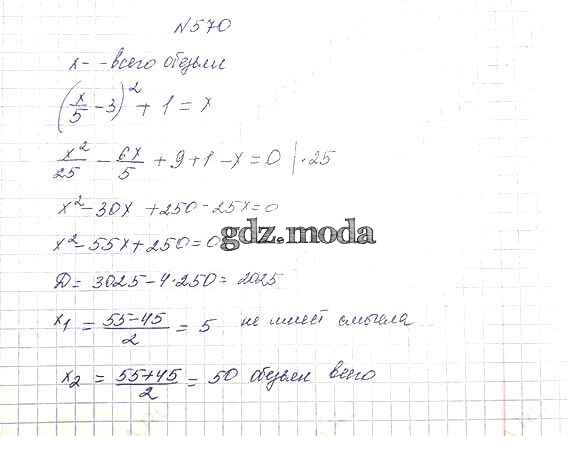 №570
x - - всего обезьян
(x/5 - 3)² + 1 = x
x²/25 - 6x/5 + 9 + 1 - x = 0 | · 25
x² - 30x + 250 - 25x = 0
x² - 55x + 250 = 0
gdz.moda
D = 3025 - 4·250 = 2025
x₁ = (55-45)/2 = 5 не имеет смысла
x₂ = (55+45)/2 = 50 обезьян всего